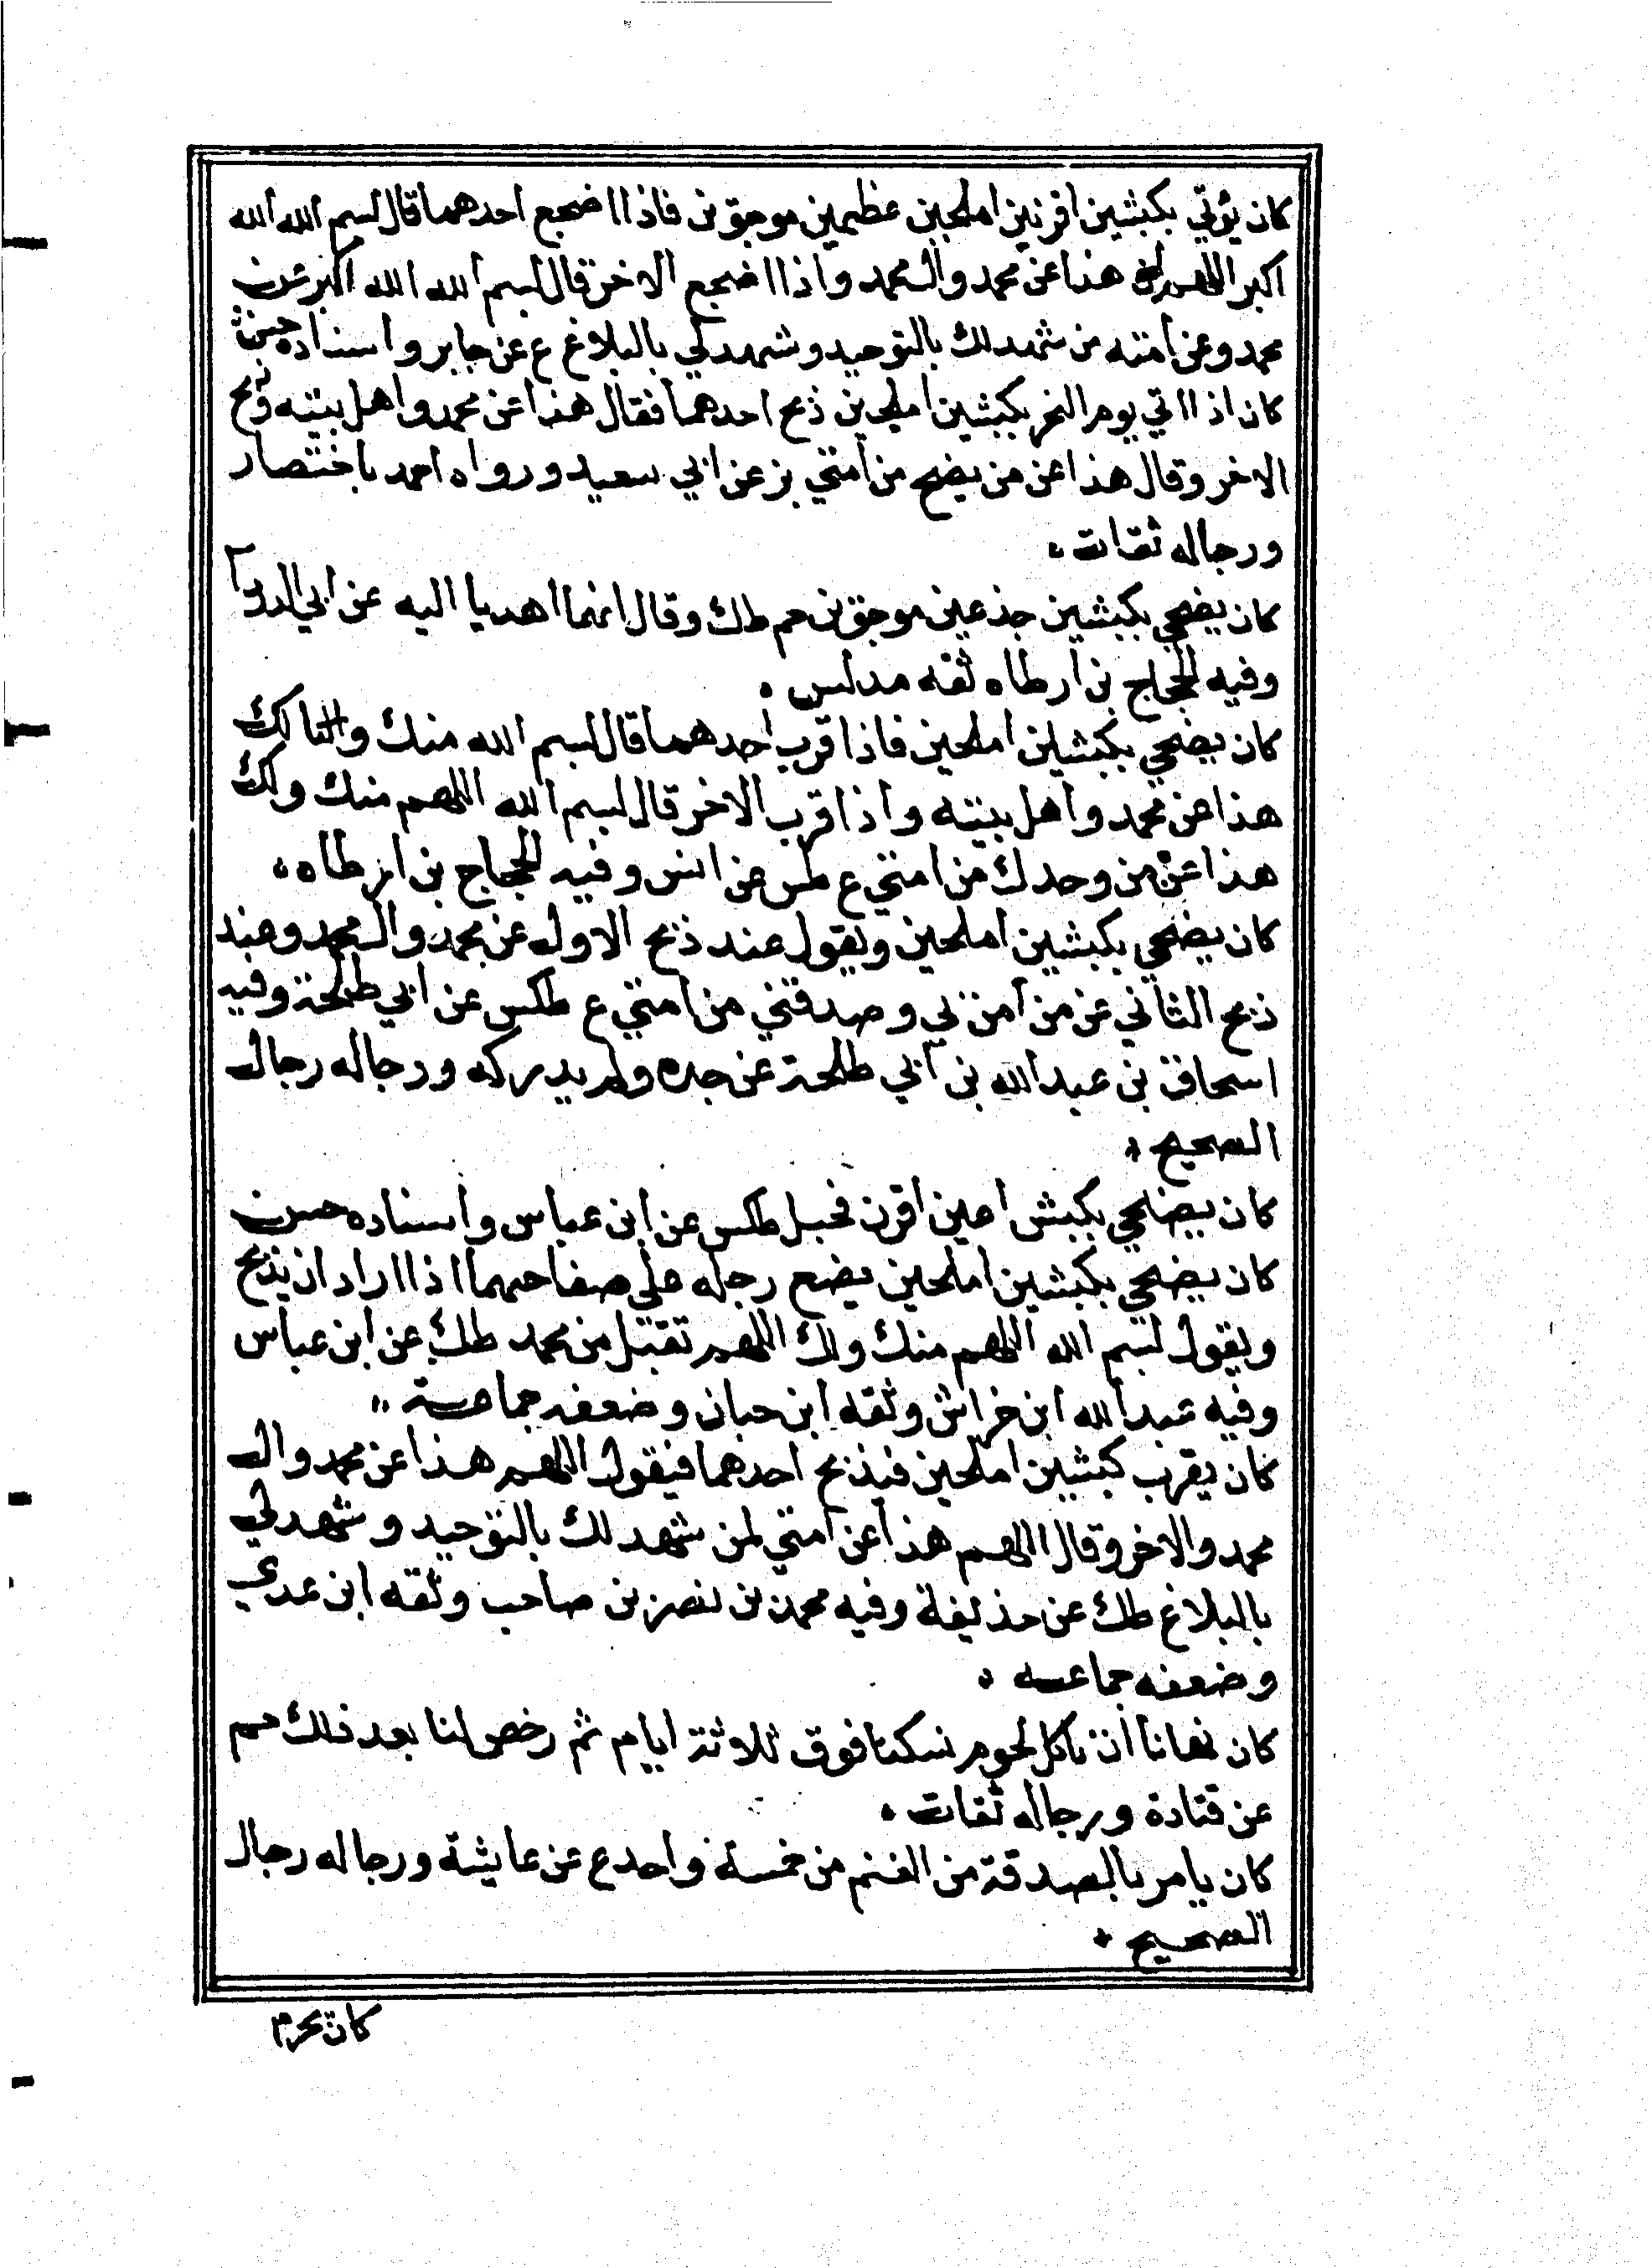 كان يؤتي بكبشين اقرنين املحين عظيمين موجوئين فاذا اضجع احدهما قال بسم الله الله
اكبر اللهم هذا عن محمد وال محمد واذا اضجع الاخر قال بسم الله الله اكبر عن
محمد وعن امته من شهد لك بالتوحيد وشهد لي بالبلاغ ع عن جابر واسناده حسن
كان اذا اتي يوم النحر بكبشين املحين ذبح احدهما فقال هذا عن محمد واهل بيته وذبح
الاخر وقال هذا عن من يضح من امتي بز عن ابي سعيد ورواه احمد باختصار
ورجاله ثقات
كان يضحي بكبشين جذعين موجوئين حم طك وقال انهما اهديا اليه عن ابي الدردآ
وفيه الحجاج بن ارطاه ثقه مدلس
كان يضحي بكبشين املحين فاذا قرب احدهما قال بسم الله منك ولك
هذا عن محمد واهل بيته واذا قرب الاخر قال بسم الله اللهم منك ولك
هذا عن من وحدك من امتي ع طس عن انس وفيه الحجاج بن ارطاه
كان يضحي بكبشين املحين ويقول عند ذبح الاول عن محمد وال محمد وعند
ذبح الثاني عن من آمن بي وصدقني من امتي ع طكس عن ابي طلحة وفيه
اسحاق بن عبد الله بن ابي طلحة عن جده ولم يدركه ورجاله رجال
الصحيح
كان يضحي بكبش اعين اقرن فحيل طكس عن ابن عباس واسناده حسن
كان يضحي بكبشين املحين يضع رجله علي صفاحهما اذا اراد ان يذبح
ويقول بسم الله اللهم منك ولك اللهم تقبل من محمد طك عن ابن عباس
وفيه عبد الله ابن خراش وثقه ابن حبان وضعفه جماعة
كان يقرب كبشين املحين فيذبح احدهما فيقول اللهم هذا عن محمد وال
محمد والاخر وقال اللهم هذا عن امتي لمن شهد لك بالتوحيد وشهد لي
بالبلاغ طك عن حذيفة وفيه محمد بن نصر بن صاحب وثقه ابن عدي
وضعفه جماعه
كان نهانا ان ناكل لحوم نسكنا فوق ثلاثة ايام ثم رخص لنا بعد ذلك حم
عن قتادة ورجاله ثقات
كان يامر بالصدقة من الغنم من خمسة واحد ع عن عايشة ورجاله رجال
الصحيح
كان يحرم